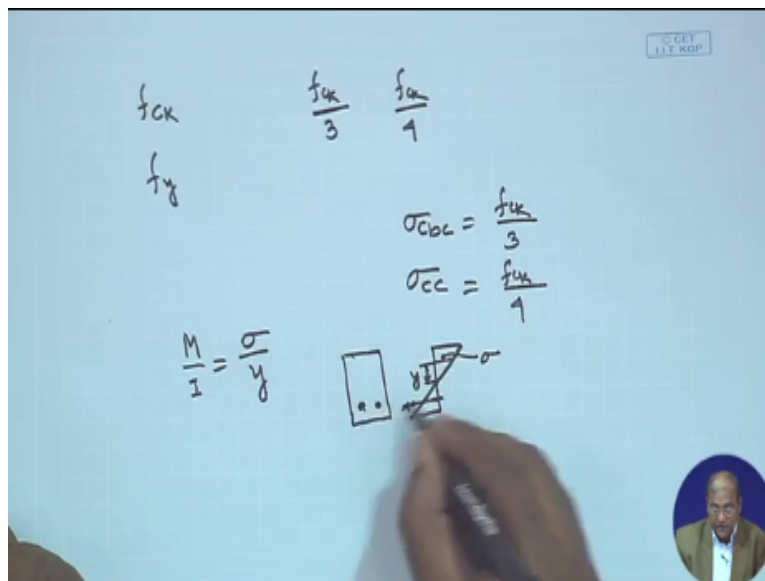 © CET
I.I.T. KGP
fck fck/3 fck/4
fy
σcbc = fck/3
σcc = fck/4
M/I = σ/y
y σ